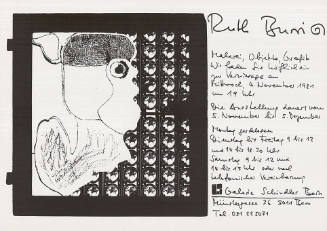 Ruth Burri
Malerei, Objekte, Grafik
Wir laden Sie höflich ein
zur Vernissage am
Mittwoch, 4. November 1981
um 19 Uhr
Die Ausstellung dauert vom
5. November bis 5. Dezember
Montag geschlossen
Dienstag bis Freitag 9 bis 12
und 14 bis 18.30 Uhr
Samstag 9 bis 12 und
14 bis 17 Uhr oder nach
telefonischer Vereinbarung
Galerie Schindler Bern
76 3011 Bern
Tel. 031